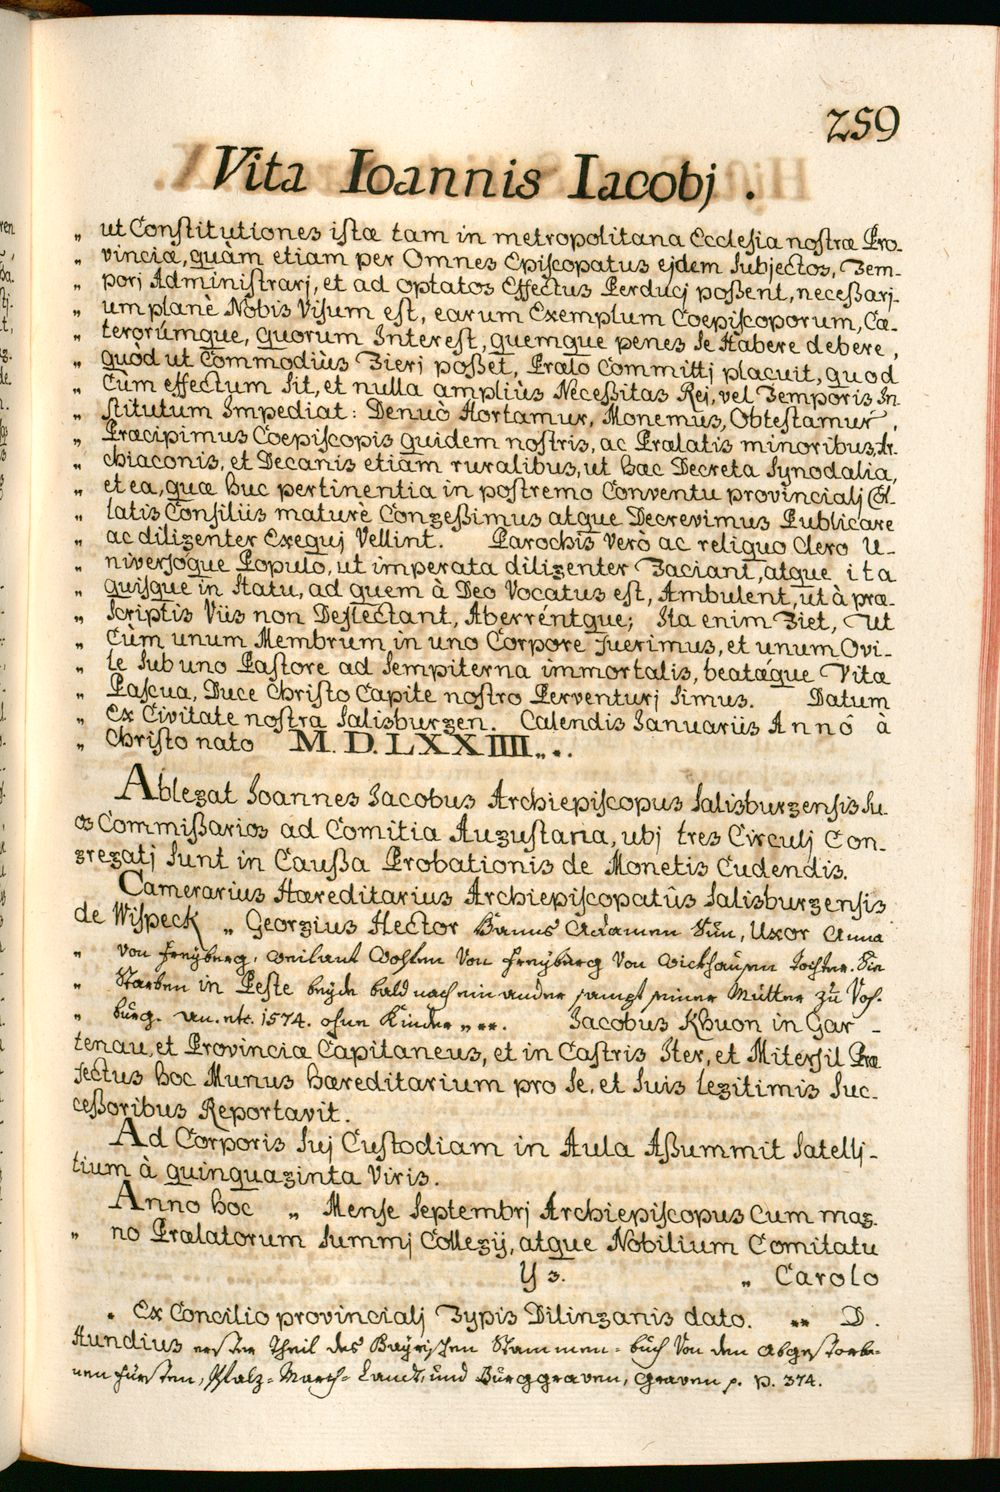 259
Vita Ioannis Iacobj .
„ ut Constitutiones istæ tam in metropolitana Ecclesia nostræ Pro-
„ vinciæ, quàm etiam per Omnes Episcopatus ejdem Subjectos, Tem-
„ porj Administrarj, et ad optatos Effectus Perducj poßent, neceßarj-
„ um planè Nobis Visum est, earum Exemplum Coepiscoporum, Cæ-
„ terorúmque, quorum Interest, quemque penes Se Habere debere,
„ quòd ut Commodiùs Fierj poßet, Prælo Committj placuit, quod
„ Cùm effectum Sit, et nulla ampliùs Neceßitas Rej, vel Temporis In
„ stitutum Impediat: Denuò Hortamur, Monemus, Obtestamur,
„ Præcipimus Coepiscopis quidem nostris, ac Prælatis minoribus, Ar-
„ chiaconis, et Decanis etiam ruralibus, ut hæc Decreta Synodalia,
„ et ea, quæ huc pertinentia in postremo Conventu provincialj Col-
„ latis Consiliis mature Congeßimus atque Decrevimus Publicare
„ ac diligenter Exequj Vellint. Parochis verò ac reliquo Clero U-
„ niversóque Populo, ut imperata diligenter Faciant, atque ita
„ quisque in Statu, ad quem à Deo Vocatus est, Ambulent, ut à præ-
„ scriptis Viis non Deflectant, Aberréntque; Ita enim Fiet, Ut
„ Cùm unum Membrum in uno Corpore Fuerimus, et unum Ovi-
„ le Sub uno Pastore ad Sempiterna immortalis, beatáque Vitæ
„ Pascua, Duce Christo Capite nostro Perventurj Simus. Datum
„ Ex Civitate nostra Salisburgen. Calendis Januariis Annô à
„ Christo nato M.D.LXXIIII„*.
Ablegat Joannes Jacobus Archiepiscopus Salisburgensis Su-
os Commißarios ad Comitia Augustana, ubj tres Circulj Con-
gregatj Sunt in Caußa Probationis de Monetis Cudendis.
Camerarius Hæreditarius Archiepiscopatûs Salisburgensis
de Wispeck „ Georgius Hector Hanns Adamen Sun, Uxor Anna
„ von Freyberg, weilant Von Freyberg Von Tochter. Sie
„ Starben in Peste beyde bald nach ein ander sampt seiner Mutter zu
„ burg. 1574. ohne Kinder „**. Jacobus Khuon in Gar-
tenau, et Provinciæ Capitaneus, et in Castris Iter, et Mitersil Præ
fectus hoc Munus hæreditarium pro Se, et Suis legitimis Suc-
ceßoribus Reportavit.
Ad Corporis Suj Custodiam in Aula Aßummit Satellj-
tium à quinquaginta Viris.
Anno hoc „ Mense Septembrj Archiepiscopus Cum mag-
„ no Prælatorum Summj Collegij, atque Nobilium Comitatu
Y 3. „ Carolo
* Ex Concilio provincialj Typis Dilinganis dato. ** D.
Hundius erster Theil des Bayrischen Stammen-buch Von den abgestorbe-
nen Fürsten, Pfalz-March-Landt, und Burggraven, Graven p. 374.